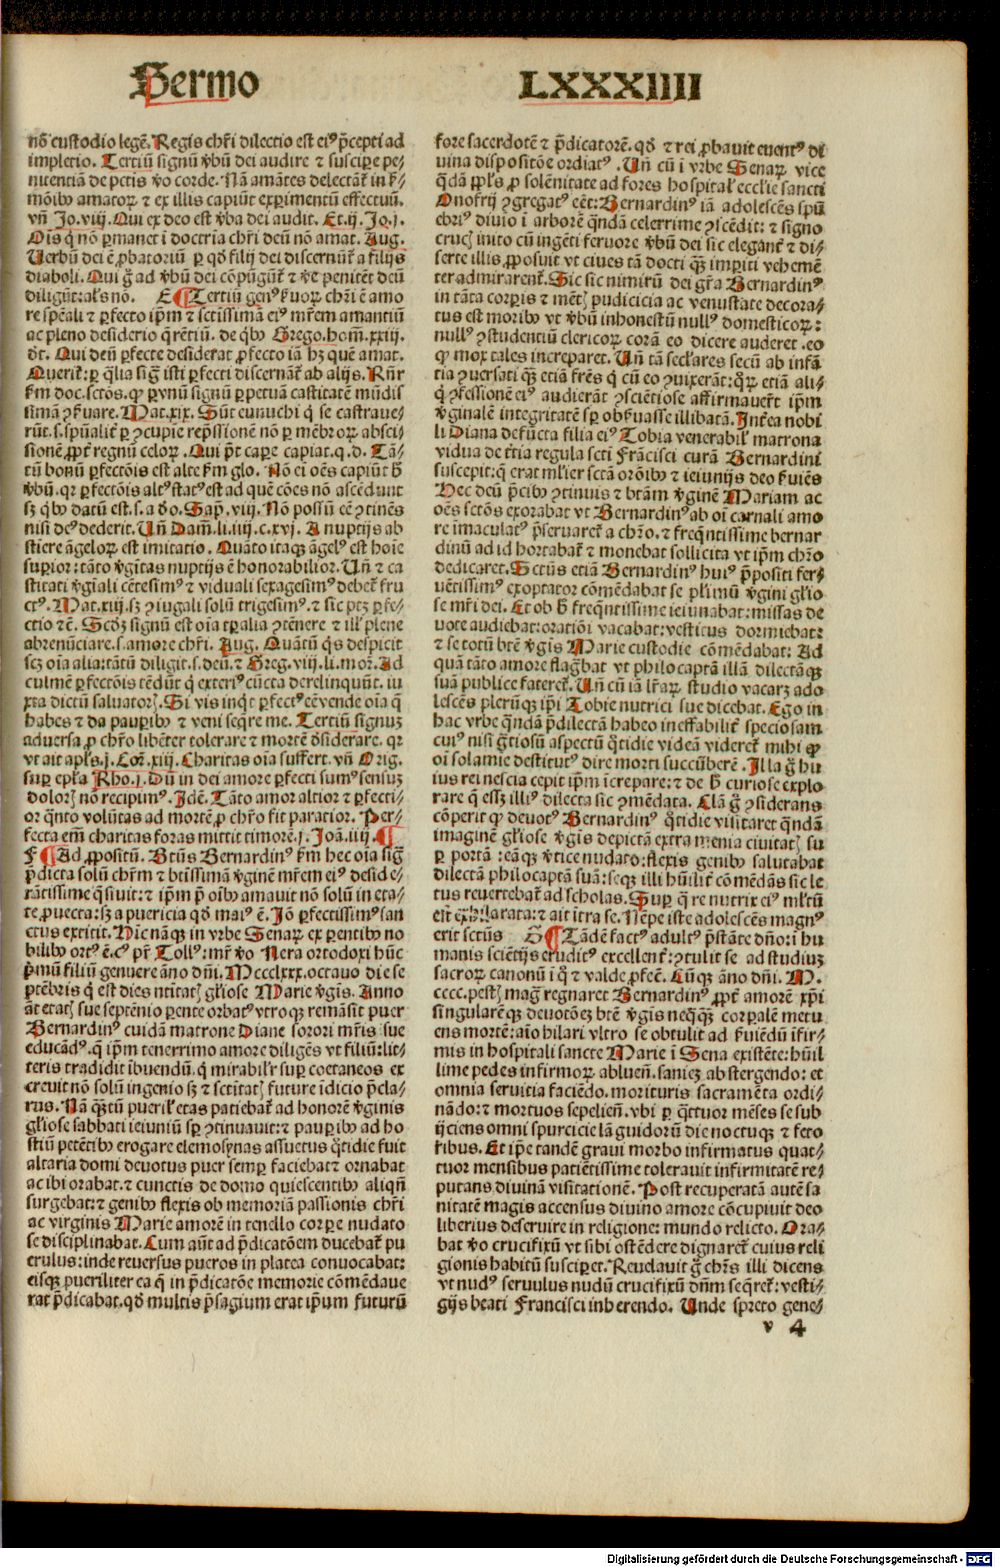 Sermo LXXXIIII
nō custodio legē. Regis chr̄i dilectio est eiꝰ p̄cepti ad
impletio. Tertiū signū v̄bū dei audire ⁊ suscipe pe⸗
nitentiā de pctis v̄o corde. Nā amātes delectāt̄ in ẜ⸗
mōibꝰ amatoꝝ ⁊ ex illis capiūt exꝑimentū effectuū.
vn̄ Jo. viij. Qui ex deo est v̄ba dei audit. Et. ij. Jo. j.
Oīs q̇ nō ꝑmanet ī doctrīa chr̄i deū nō amat. Aug.
Verbū dei ē ꝓbatoriū ꝑ qḋ filij dei discernūt̄ a filijs
diaboli. Qui g̊ ad v̄bū dei cōpūgūt̄ ⁊ v̄e penitēt deū
diligūt: al̄s nō. E ¶ Tertiū genꝰ ẜuoꝝ chr̄i ē amo
re sp̄eali ⁊ ꝑfecto ip̄m ⁊ sctissimā eiꝰ mr̄em amantiū
ac pleno desiderio q̄rētiū. de qͥbꝰ Grego. hom̄. xxiij.
d̄t. Qui deū ꝑfecte desiderat ꝓfecto iā hꝫ quē amat.
Querit̄: ꝑ q̄lia siḡ isti ꝑfecti discernāt̄ ab alijs. Rn̄r
ẜm doc. sctōs. ꝙ pͥmū signū ꝑpetuā castitatē mūdis
simā ꝯẜuare. Mat. xix. Sūt eunuchi q̇ se castraue⸗
rūt. s. spūalit̄ ꝑ ꝯcupie rep̄ssionē nō ꝑ mēbroꝝ absci⸗
sionē, ꝓpt̄ regnū celoꝝ. Qui pt̄ caꝑe capiat. q. d. Tā⸗
tū bonū ꝑfectōis est alte ẜm glo. Nō ei oēs capiūt h̄
v̄bū. qꝛ ꝑfectōis altꝰ statꝰ est ad quē cōes nō ascēdunt
sꝫ qͥbꝰ datū est. s. a d̄o. Sap. viij. Nō possū eē ꝯtinēs
nisi deꝰ dederit. Un̄ Dam̄. li. iiij. c. xvj. A nuptijs ab
stiere āgeloꝝ est imitatio. Quāto itaqꝫ āgelꝰ est hoīe
suꝑior: tāto v̄gītas nuptijs ē honorabilior. Un̄ ⁊ ca
stitati v̄gīali cētesimꝰ ⁊ viduali sexagesimꝰ debet̄ fru
ctꝰ. Mat. xiij. sꝫ ꝯiugali solū trigesimꝰ. ⁊ sic ptꝫ ꝑfe⸗
ctio ⁊ē. Scd̄ꝫ signū est oīa tꝑalia ꝯtēnere ⁊ ill̄ plene
abrenūciare. s. amore chr̄i. Aug. Quātū qͥs despicit
scꝫ oīa alia: tātū diligit. s. deū. ⁊ Greg. viij. li. mor̄. Ad
culmē ꝑfectōis tēdūt q̇ exteriꝰ cūcta derelinquūt. iu
xta dictū saluatorꝭ. Si vis inqͥt ꝑfectꝰ eē vende oīa q̄
habes ⁊ da pauꝑibꝰ ⁊ veni seq̄re me. Tertiū signuꝫ
aduersa ꝓ chr̄o libēter tolerare ⁊ mortē d̄siderare. qꝛ
vt ait apl̄s. j. Cor̄. xiij. Charitas oīa suffert. vn̄ Orig.
suꝑ epl̄a Rho. j. Dū in dei amore ꝑfecti sumꝰ sensuꝫ
dolorꝭ nō recipimꝰ. Jdē. Tāto amor altior ⁊ ꝑfecti⸗
or q̄nto volūtas ad mortē ꝓ chr̄o fit paratior. Per⸗
fecta em̄ charitas foras mittit timorē. j. Joā. iiij. ¶
F ¶ Ad ꝓpositū. Btūs Bernardinꝰ ẜm hec oīa siḡ
p̄dicta solū chr̄m ⁊ btīssimā v̄ginē mr̄em eiꝰ deside⸗
rātissime q̄siuit: ⁊ ip̄m p̄ oībꝰ amauit nō solū in eta⸗
te ꝓuecta: sꝫ a puericia qḋ maiꝰ ē. Jō ꝑfectissimꝰ san
ctus extitit. Hic nāqꝫ in vrbe Senaꝝ ex ꝑentibꝰ no
bilibꝰ ortꝰ ē. cꝰ pr̄ Tollꝰ: mr̄ v̄o Nera ortodoxi hūc
pͥmū filiū genuere āno dn̄i. Mccclxxx. octauo die se
ptēbris q̇ est dies ntītatꝭ gl̄iose Marie v̄gīs. Anno
āt etatꝭ sue septēnio ꝑente orbatꝰ vtroqꝫ remāsit puer
Bernardinꝰ cuidā matrone Diane sorori mr̄is sue
educādꝰ. q̄ ip̄m tenerrimo amore diligēs vt filiū: lit⸗
teris tradidit ībuendū. q̇ mirabilr̄ suꝑ coetaneos ex
creuit nō solū ingenio sꝫ ⁊ sctītatꝭ future īdicio p̄cla⸗
rus. Nā q̄ꝫtū pueril̄ etas patiebat̄ ad honorē v̄ginis
gl̄iose sabbati ieiuniū sp̄ ꝯtinuauit: ⁊ pauꝑibꝰ ad ho
stiū petētibꝰ erogare elemosynas assuetus q̄tidie fuit
altaria domi deuotus puer semꝑ faciebat ⁊ ornabat
ac ibi orabat. ⁊ cunctis de domo quiescentibꝰ aliqn̄
surgebat: ⁊ genibꝰ flexis ob memoriā passionis chr̄i
ac virginis Marie amorē in tenello corꝑe nudato
se disciplinabat. Cum aūt ad p̄dicatōem ducebat̄ pu
erulus: inde reuersus pueros in platea conuocabat:
eisqꝫ pueriliter ea q̄ in p̄dicatōe memorie cōmēdaue
rat p̄dicabat. qḋ multis p̄sagium erat ip̄um futurū
fore sacerdotē ⁊ p̄dicatorē. qḋ ⁊ rei ꝓbauit euentꝰ di
uina dispositōe ordiatꝰ. Un̄ cū ī vrbe Senaꝝ vice
q̄dā ppl̄s ꝓ solēnitate ad fores hospital̄ ecclie sancti
Onofrij ꝯgregatꝰ eēt: Bernardinꝰ iā adolescēs spū
ebriꝰ diuio ī arborē q̄ndā celerrime ꝯscēdit: ⁊ signo
crucꝭ inito cū ingēti feruore v̄bū dei sic elegant̄ ⁊ di⸗
serte illis ꝓposuit vt ciues tā docti q̄ꝫ imꝑiti vehemē
ter admirarent̄. Sic sic nimirū dei gr̄a Bernardinꝰ
in tāta corꝑis ⁊ mētꝭ pudicicia ac venustate decora⸗
tus est moribꝰ vt v̄bū inhonestū nullꝰ domesticoꝝ:
nullꝰ ꝯstudentiū clericoꝝ corā eo dicere auderet. eo
ꝙ mox tales increparet. Un̄ tā sec̄lares secū ab infā⸗
tia ꝯuersati q̄ꝫ etiā fr̄es q̇ cū eo ꝯuixerāt: qꝝ etiā ali⸗
q̇ ꝯfessionē eiꝰ audierāt ꝯsciētiose affirmauer̄t ip̄m
v̄ginalē integritatē sꝑ obẜuasse illibatā. Jnt̄ea nobi
li Diana defūcta filia eiꝰ Tobia venerabil̄ matrona
vidua de t̄tia regula scti Frācisci curā Bernardini
suscepit: q̄ erat ml̄ier sctā orōibꝰ ⁊ ieiunijs deo ẜuiēs
Hec deū p̄cibꝰ ꝯtinuis ⁊ btām v̄ginē Mariam ac
oēs sctōs exorabat vt Bernardinꝰ ab oī carnali amo
re īmaculatꝰ p̄seruaret̄ a chr̄o. ⁊ freq̄ntissime bernar
dinū ad id hortabat̄ ⁊ monebat sollicita vt ip̄m chr̄o
dedicaret. Sctūs etiā Bernardinꝰ huiꝰ p̄positi fer⸗
uētissimꝰ exoptator cōmēdabat se pl̄imū v̄gini gl̄io
se mr̄i dei. Et ob h̄ freq̄ntissime ieiunabat: missas de
uote audiebat: oratiōi vacabat: vestitus dormiebat:
⁊ se totū btē v̄gīs Marie custodie cōmēdabat: Ad
quā tāto amore flag̊bat vt philocaptā illā dilectāqꝫ
suā publice fateret̄. Un̄ cū iā lr̄aꝝ studio vacarꝫ ado
lescēs plerūqꝫ ip̄i Tobie nutrici sue dicebat. Ego in
hac vrbe q̄ndā p̄dilectā habeo ineffabilit̄ speciosam
cuiꝰ nisi g̊tiosū aspectū q̄tidie videā videret̄ mihi ꝙ
oī solamie destitutꝰ dire morti succūberē. Jlla g̊ hu
ius rei nescia cepit ip̄m īcrepare: ⁊ de h̄ curiose explo
rare q̄ essꝫ illiꝰ dilecta sic ꝯmēdata. Clā g̊ ꝯsiderans
cōperit ꝙ deuotꝰ Bernardinꝰ q̄tidie visitaret q̄ndā
imaginē gl̄iose v̄gīs depictā extra menia ciuitatꝭ su
ꝑ portā: eāqꝫ v̄tice nudato: flexis genibꝰ salutabat
dilectā philocaptā suā: seqꝫ illi hūilit̄ cōmēdās sic le
tus reuertebat̄ ad scholas. Suꝑ q̄ re nutrix eiꝰ ml̄tū
est exhilarata: ⁊ ait ītra se. Nēpe iste adolescēs magnꝰ
erit sctūs G ¶ Tādē factꝰ adultꝰ p̄stāte dn̄o: ī hu
manis sciētijs eruditꝰ excellent̄: ꝯtulit se ad studiuꝫ
sacroꝝ canonū ī q̄ ⁊ valde ꝓfecē. Cūqꝫ āno dn̄i. M.
cccc. pestꝭ mag̊ regnaret Bernardinꝰ ꝓpt̄ amorē xp̄i
singularēqꝫ deuotōeꝫ btē v̄gīs neqͣq̄ꝫ corꝑalē metu
ens mortē: aīo hilari vltro se obtulit ad ẜuiēdū īfir⸗
mis in hospitali sancte Marie ī Sena existēte: hūil
lime pedes infirmoꝝ abluen̄. sanieꝫ abstergendo: et
omnia seruitia faciēdo. morituris sacramēta ordi⸗
nādo: ⁊ mortuos sepelien̄. vbi ꝑ q̄ttuor mēses se sub
ijciens omni spurcicie lāguidorū die noctuqꝫ ⁊ feto
ribus. Et ip̄e tandē graui morbo infirmatus quat⸗
tuor mensibus patiētissime tolerauit infirmitatē re⸗
putans diuinā visitationē. Post recuperatā autē sa
nitatē magis accensus diuino amore cōcupiuit deo
liberius deseruire in religione: mundo relicto. Ora⸗
bat v̄o crucifixū vt sibi ostēdere dignaret̄ cuius reli
gionis habitū susciꝑet. Reuelauit g̊ chr̄s illi dicens
vt nudꝰ seruulus nudū crucifixū dn̄m seq̄ret̄: vesti⸗
gijs beati Francisci inherendo. Unde sp̄reto gene⸗
v 4
Digitalisierung gefördert durch die Deutsche Forschungsgemeinschaft - DFG